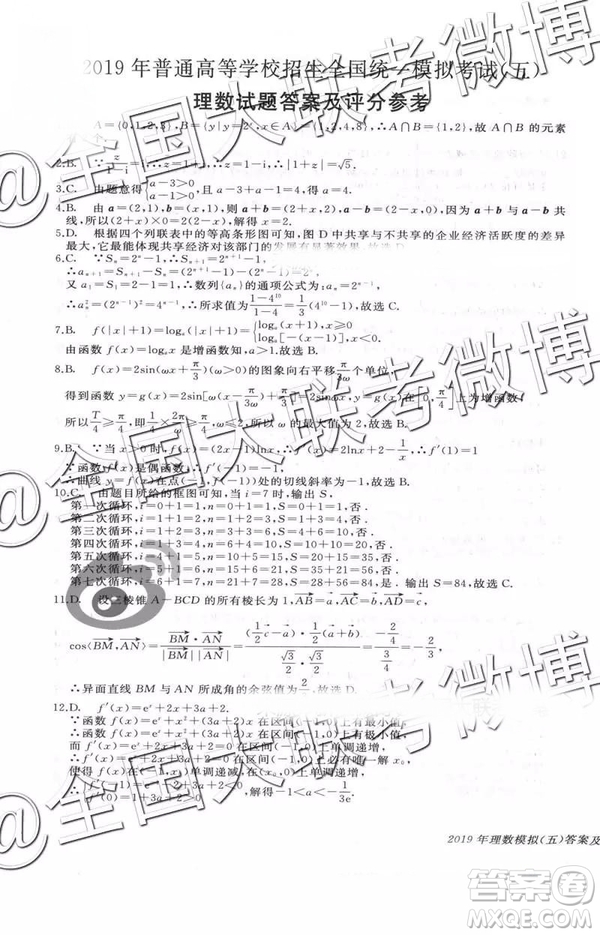 2019 年普通高等学校招生全国统一模拟考试(五)
理数试题答案及评分参考
A={0,1,2,3}, B={y|y=2ˣ,x∈A}={1,2,4,8},∴A∩B={1,2},故 A∩B 的元素
2.B.
∴|1+z|=√5.
3.C. 由题意得{a-3>0, a-3+a-1=4, 得 a=4.
4.B. 由 a=(2,1),b=(x,1),则 a+b=(2+x,2),a-b=(2-x,0),因为 a+b 与 a-b 共
线,所以(2+x)×0=2(2-x),解得 x=2.
5.D. 根据四个列联表中的等高条形图可知,图 D 中共享与不共享的企业经济活跃度的差异
最大,它最能体现共享经济对该部门的发展有显著效果,故选 D.
6.C. ∵Sₙ=2ⁿ-1,∴Sₙ₊₁=2ⁿ⁺¹-1
∴aₙ₊₁=Sₙ₊₁-Sₙ=2ⁿ
又 a₁=S₁=2-1=1,∴数列{aₙ}的通项公式为:aₙ=2ⁿ⁻¹
∴所求值为 (1-4¹⁰)/(1-4)=1/3(4¹⁰-1),故选 C.
7.B. f(|x|+1)=logₐ(|x|+1)={logₐ(x+1), x≥0 logₐ[-(x-1)], x<0
由函数 f(x)=logₐx 是增函数知,a>1.故选 B.
8.B. f(x)=2sin(ωx+π/3)(ω>0)的图象向右平移 π/3ω 个单位,
得到函数 y=g(x)=2sin[ω(x-π/3ω)+π/3]=2sinωx,y=g(x)在[0,π/4]上为增函数,
所以 T/4≥π/4,
9.B. ∵当 x>0 时,f(x)=(2x-1)lnx,∴f′(x)=2lnx+2-1/x,∴f′(1)=1
∵函数 f(x)是偶函数,∴f′(-1)=-1
∴曲线 y=f(x)在点(-1,f(-1))处的切线斜率为-1,故选 B.
10.C. 由题目所给的框图可知,当 i=7 时,输出 S.
第一次循环,i=1,n=0+1=1,S=0+1=1,否.
第二次循环,i=2,n=1+2=3,S=1+3=4,否.
第三次循环,i=3,n=3+3=6,S=4+6=10,否.
第四次循环,i=4,n=6+4=10,S=10+10=20,否.
第五次循环,i=5,n=10+5=15,S=20+15=35,否.
第六次循环,i=6,n=15+6=21,S=35+21=56,否.
第七次循环,i=7,n=21+7=28,S=56+28=84,是.输出 S=84,故选 C.
11.D. 设三棱锥 A-BCD 的所有棱长为 1,AB=a,AC=b,AD=c,
cos⟨BM,AN⟩=BM·AN/(|BM||AN|)=(1/2c-a)·1/2(a+b)/(√3/2×√3/2)=-2/3.
∴异面直线 BM 与 AN 所成角的余弦值为
12.D. f′(x)=eˣ+2x+3a,
∵函数 f(x)=eˣ+x²+(3a+2)x 在区间(-1,0)上有最小值
∴函数 f(x)=eˣ+x²+(3a+2)x 在区间(-1,0)上有极小值,而
f′(x)=eˣ+2x+3a+2 在区间(-1,0)上单调递增,
∴f′(x)=eˣ+2x+3a+2=0 在区间(-1,0)上必有唯一解 x₀,
使得 f(x)在(-1,x₀)单调递减,在(x₀,0)上单调递增,
∴f′(0)=1+3a+2>0,解得-1<a<-1/3e
2019 年理数模拟(五)答案及
@全国大联考微博
@全国大联考微博
@全国大联考微博
答案圈
MXQE.COM